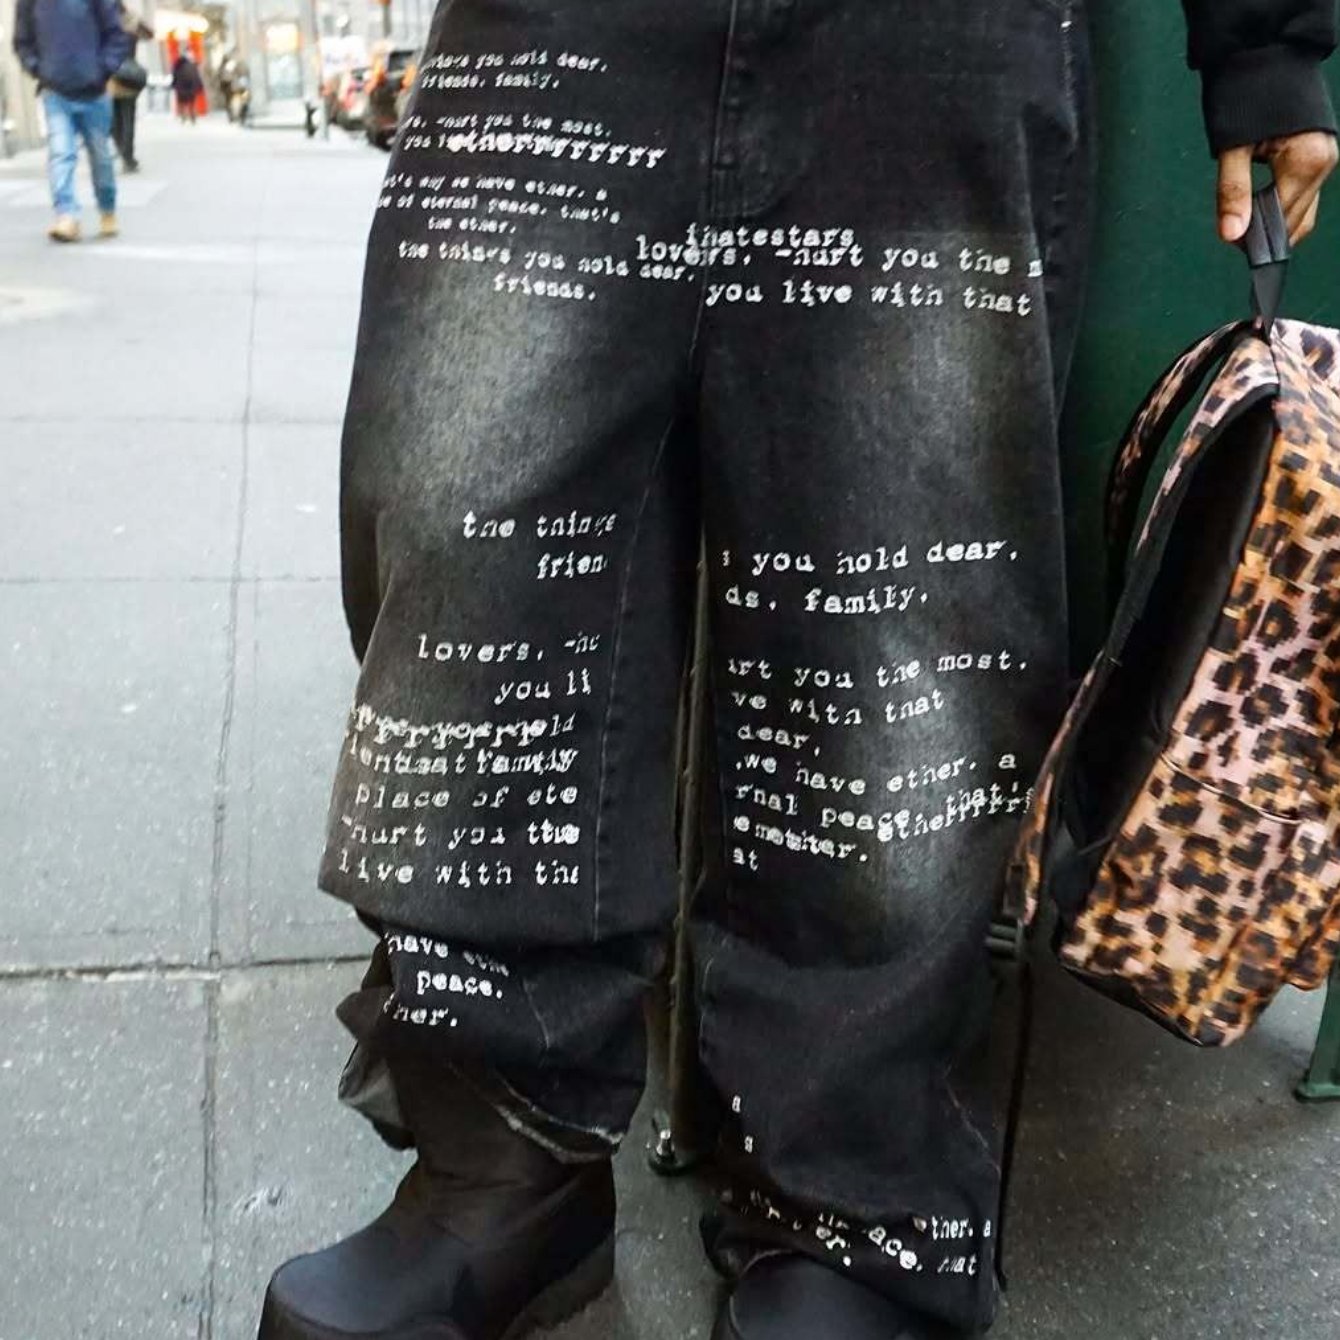 things you hold dear.
friends. family.
-hurt you the most.
you etherrrrrrrrr
that's why we have ether. a
of eternal peace. that's
the ether.
the things you hold dear.
friends.
ihatestars
lovers. -hurt you the
you live with that
the things
frien
you hold dear.
ds. family.
lovers. -hu
you li
urt you the most.
ve with that
dear,
we have ether. a
rnal peace. that's
etherrrrr
at
old
family
place of ete
-hurt you the
live with tha
have
peace.
her.
a
s
ther. a
ace.
er.